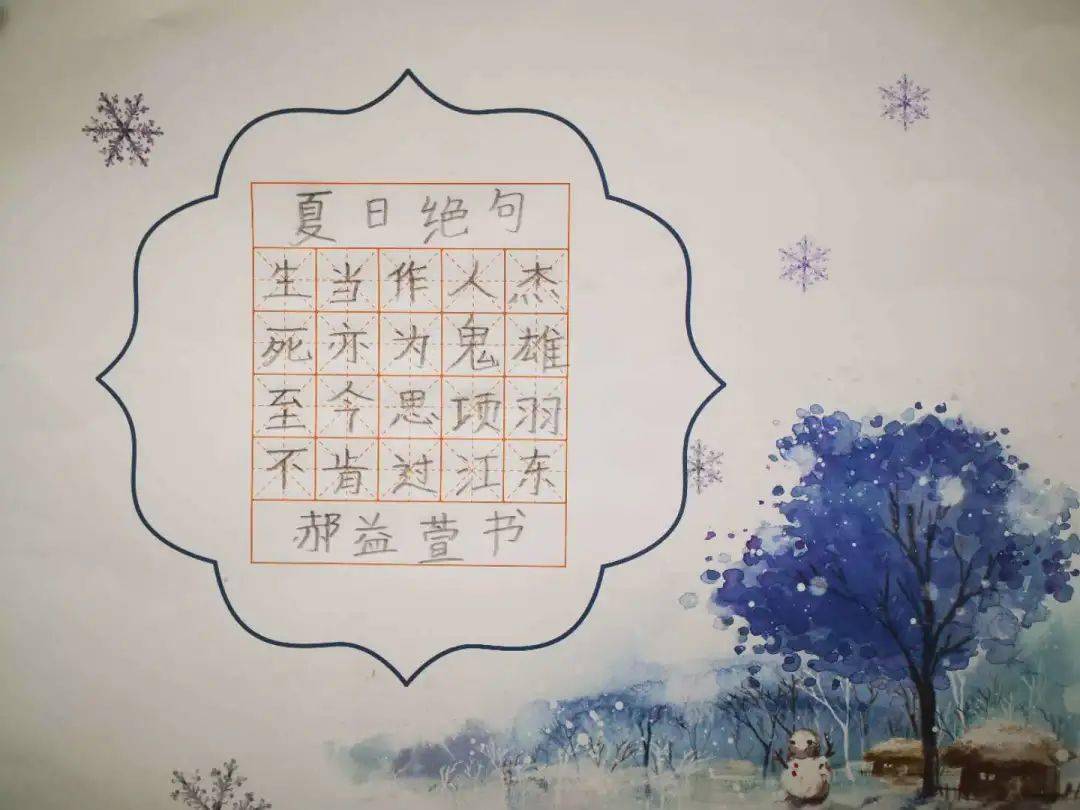 夏日绝句
生当作人杰
死亦为鬼雄
至今思项羽
不肯过江东
郝益萱书